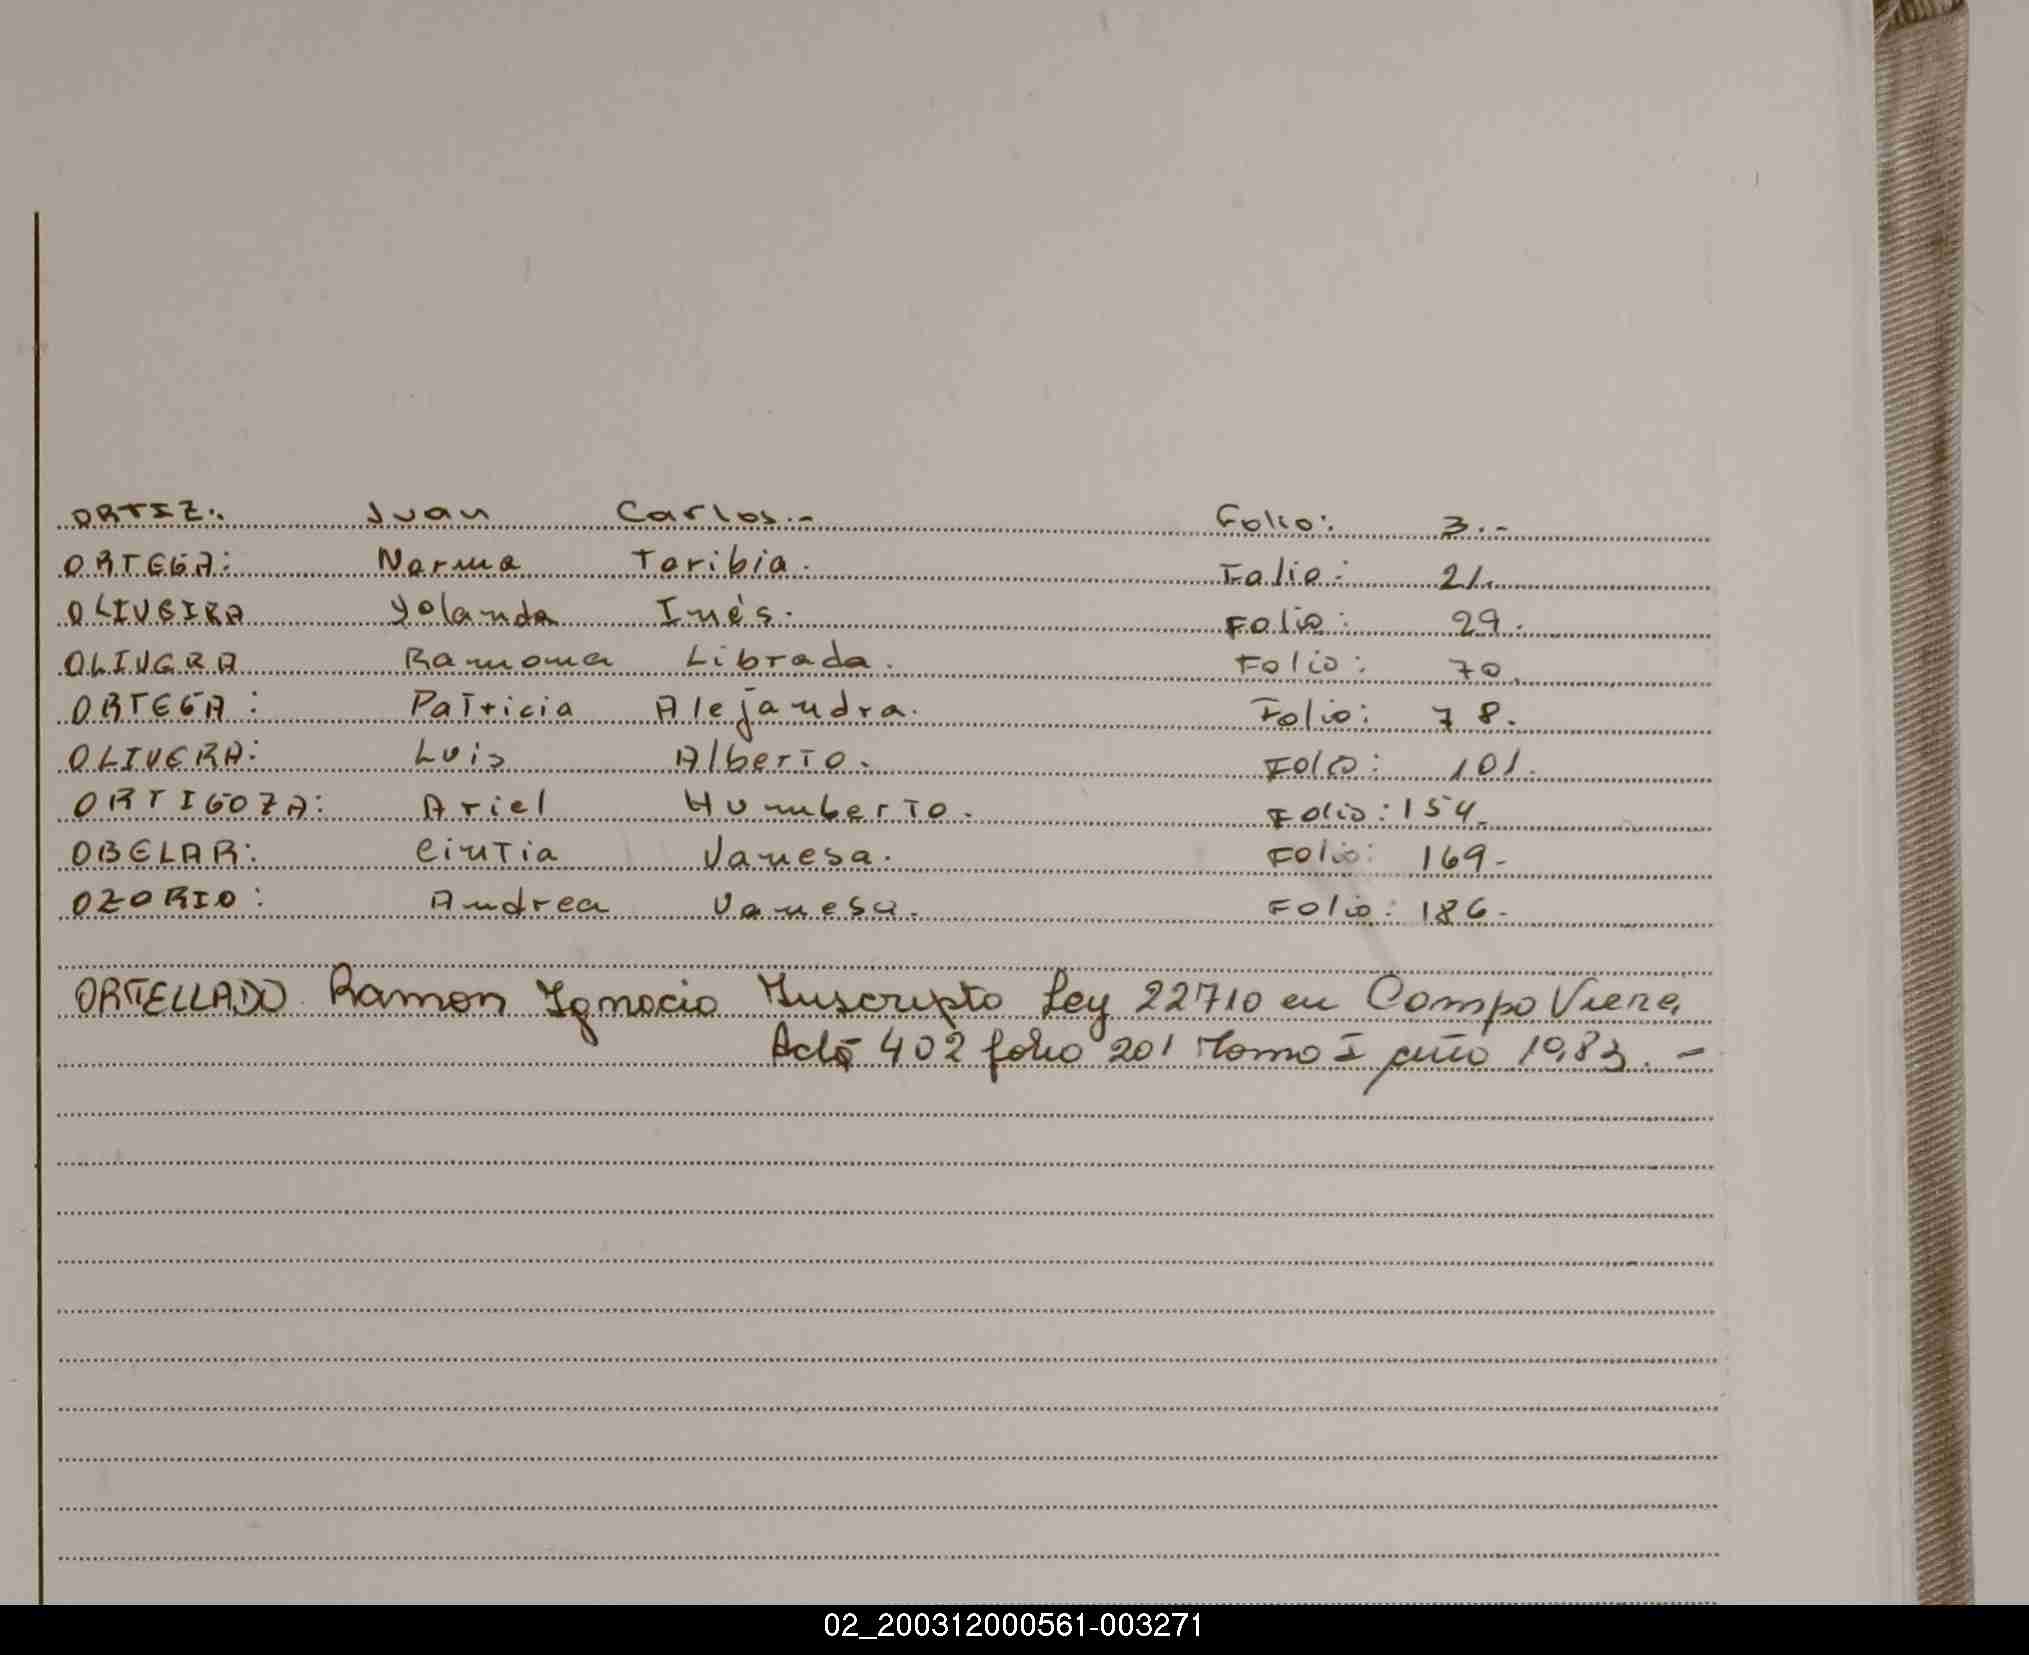 ORTIZ: Juan Carlos.- Folio: 3.-
ORTEGA: Norma Toribia. Folio: 21.
OLIVEIRA Yolanda Inés. Folio: 29.
OLIVERA Ramona Librada. Folio: 70.
ORTEGA: Patricia Alejandra. Folio: 78.
OLIVERA: Luis Alberto. Folio: 101.
ORTIGOZA: Ariel Humberto. Folio: 154.
OBELAR: Cintia Vanesa. Folio: 169-
OZORIO: Andrea Vanesa. Folio: 186-
ORTELLADO Ramon Ignacio Inscripto Ley 22710 en Campo Viera
Acta 402 folio 201 Tomo I año 1983.-
02_200312000561-003271